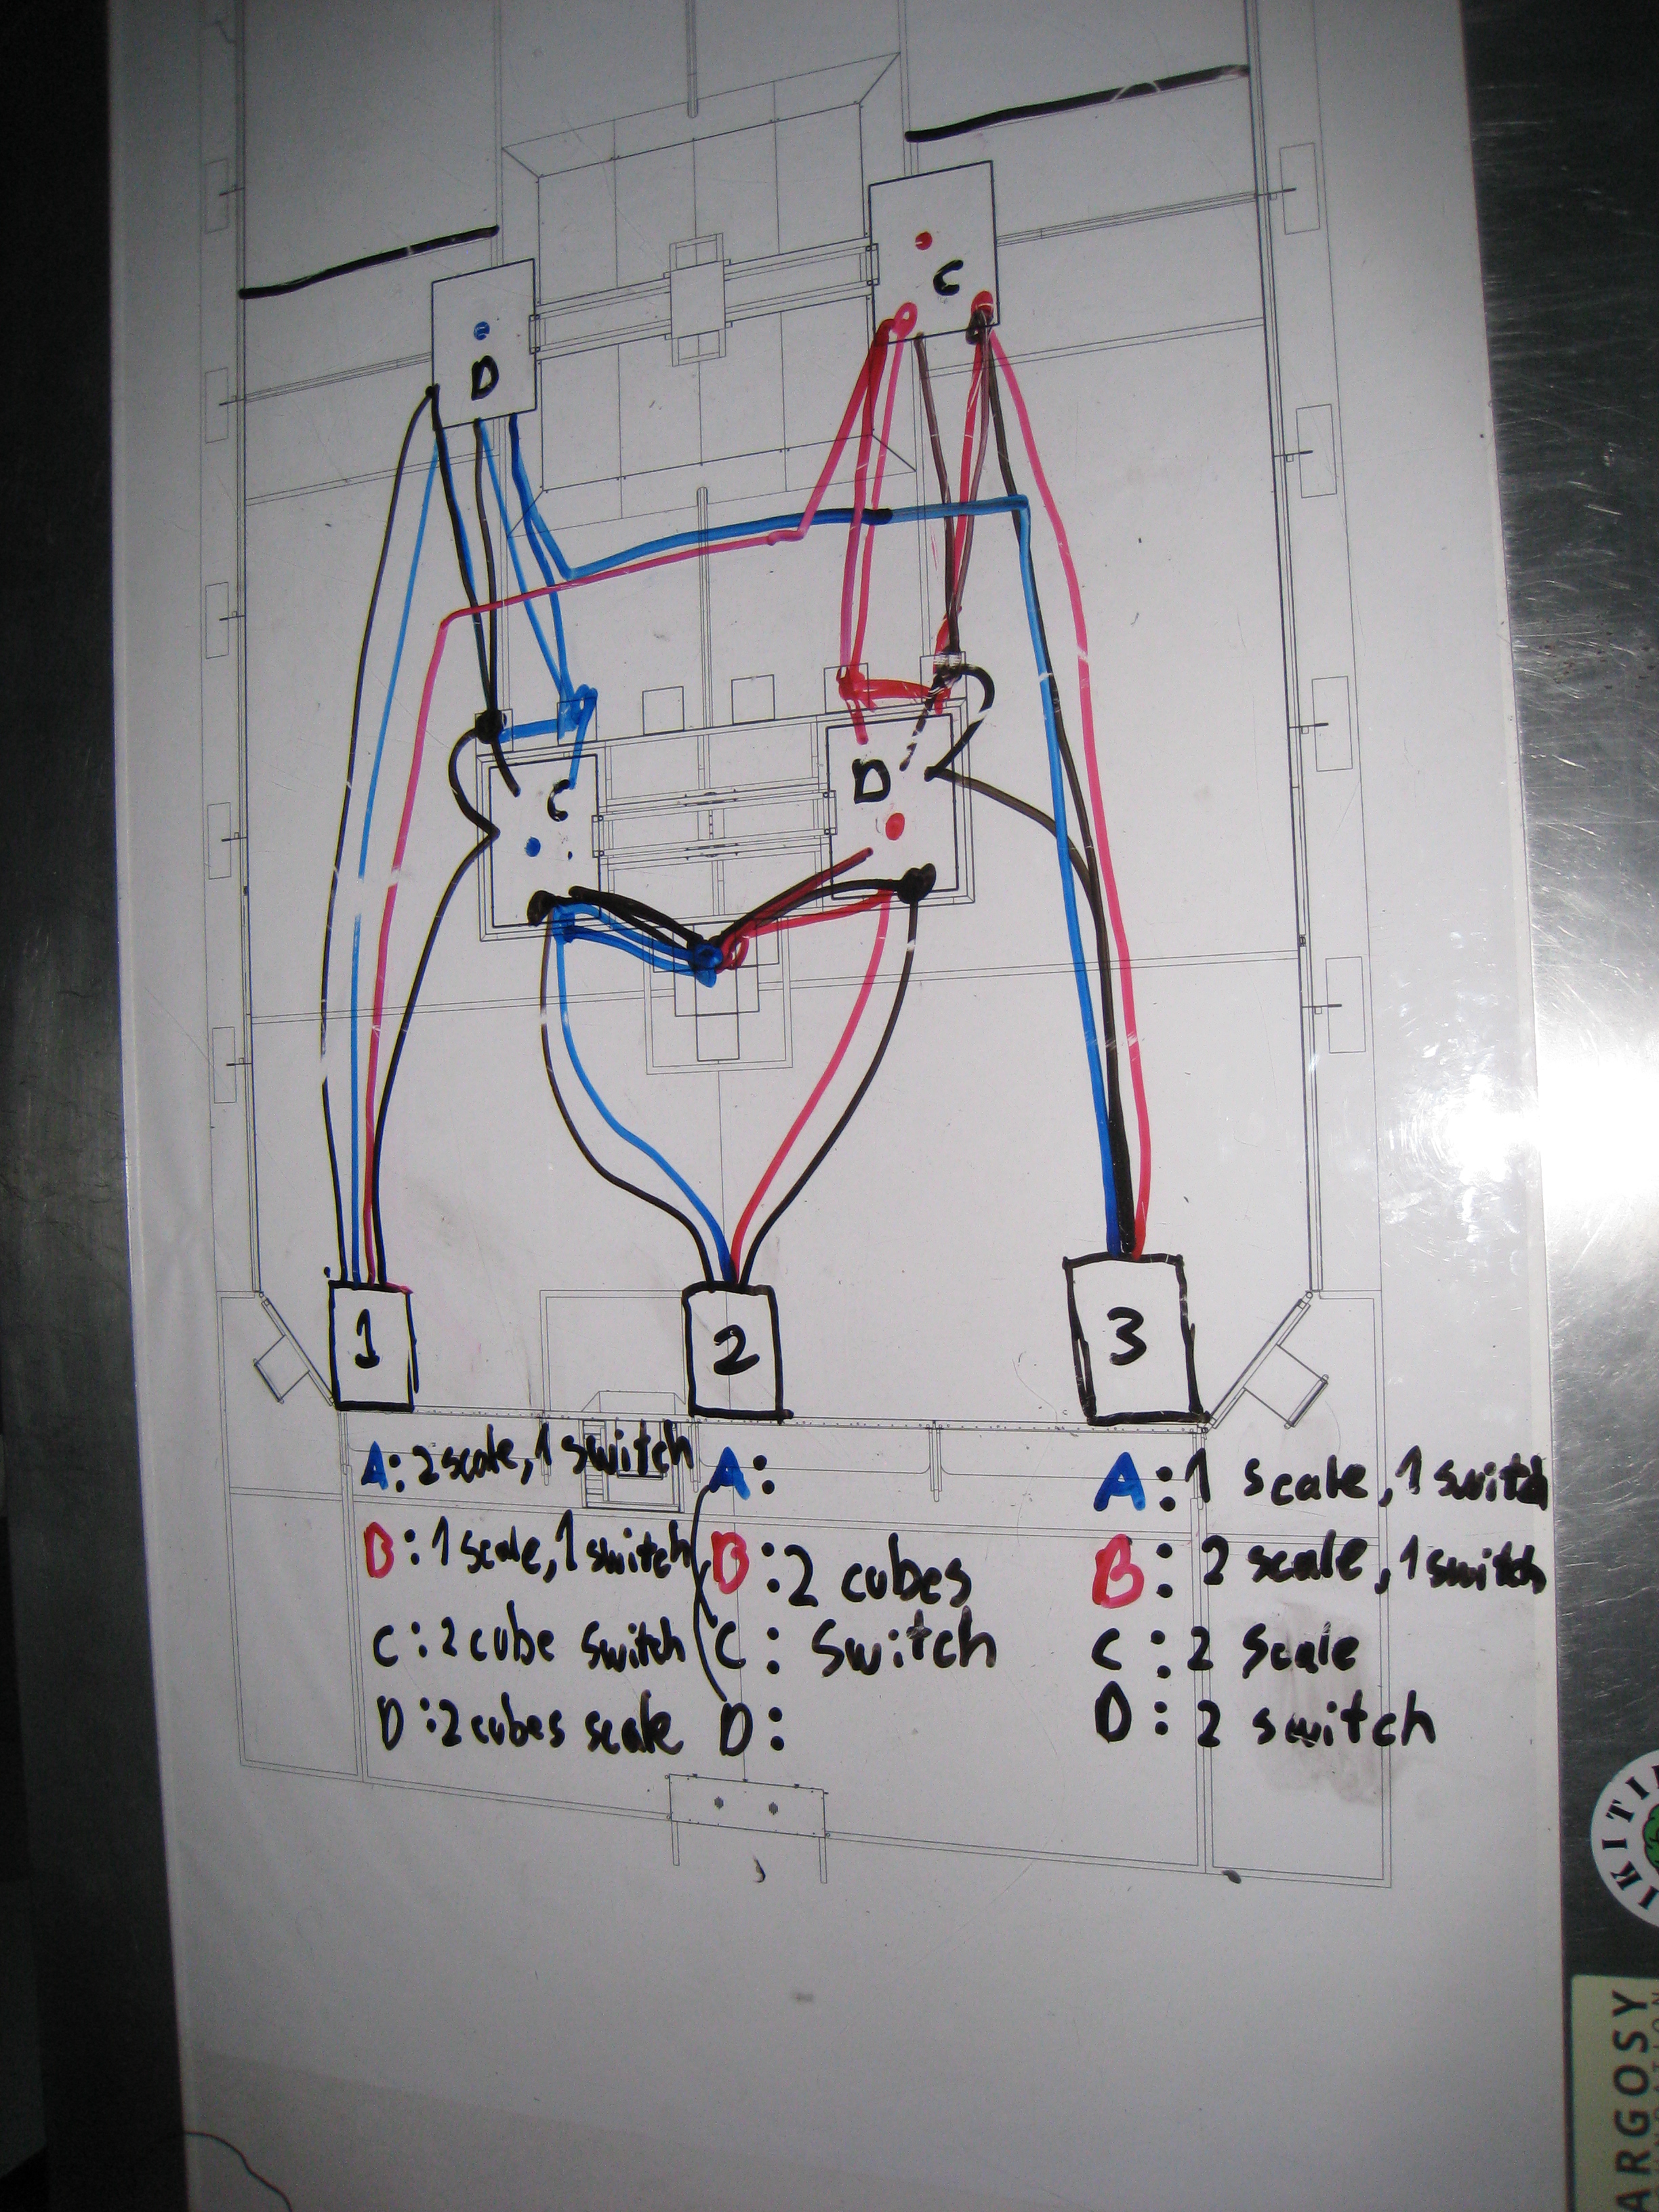 C
D
C
D
1
2
3
A: 2 scale, 1 switch
B: 1 scale, 1 switch
C: 2 cube switch
D: 2 cubes scale
A:
B: 2 cubes
C: switch
D:
A: 1 scale, 1 switch
B: 2 scale, 1 switch
C: 2 scale
D: 2 switch
ARGOSY